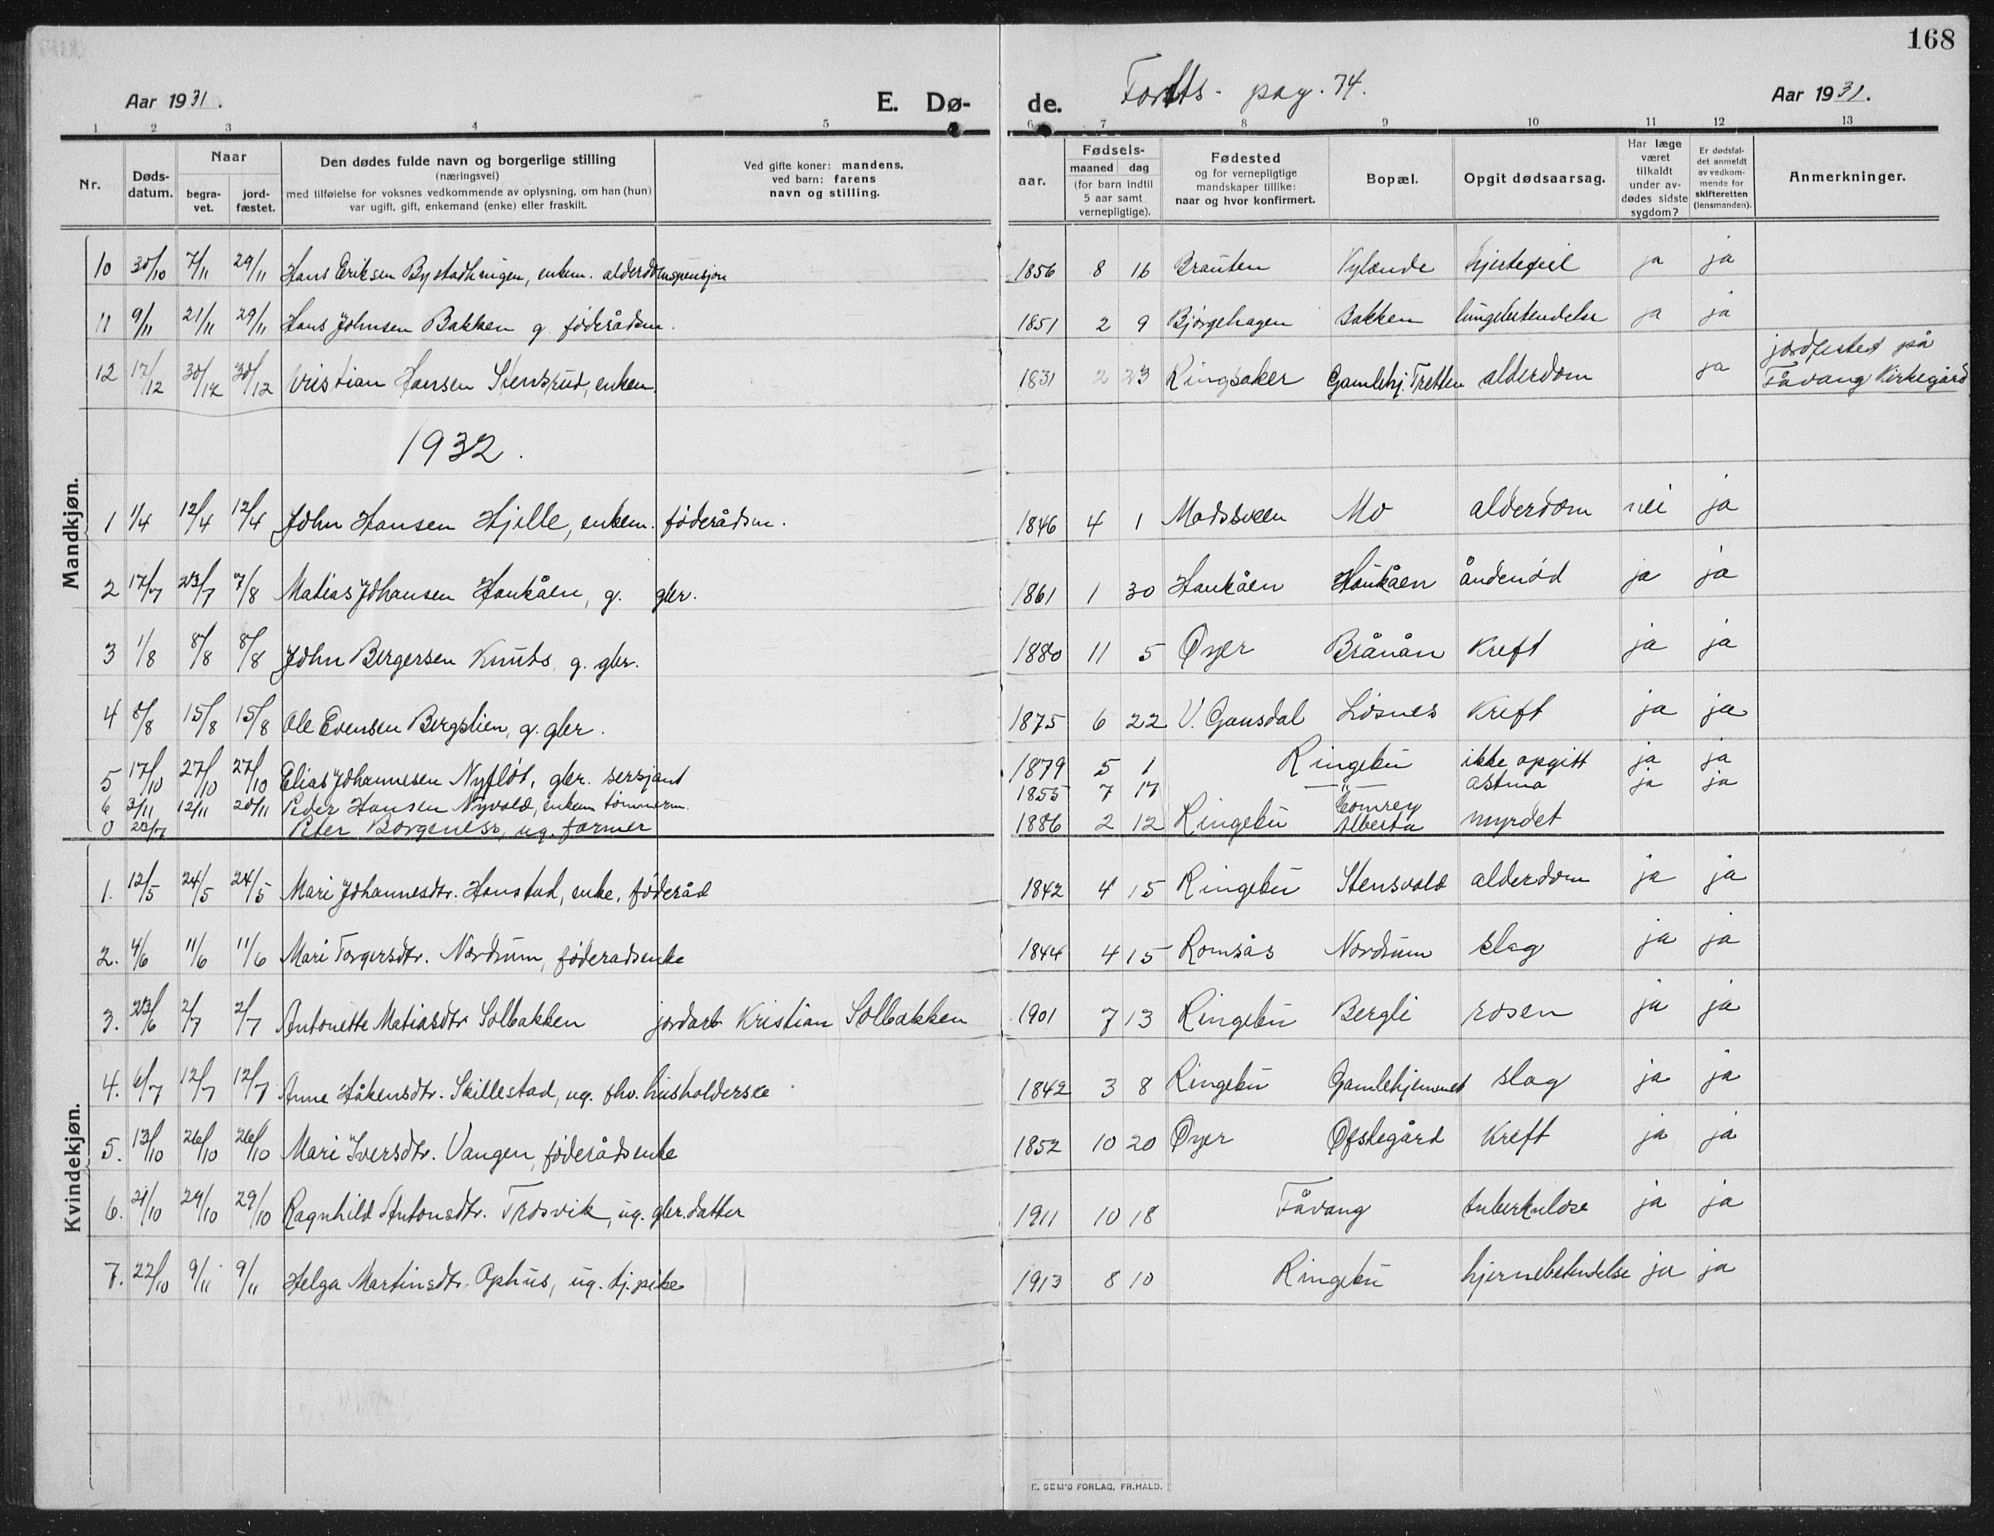 168
Aar 1931.
E. Dø-
de.
Fortts. pag. 74.
Aar 1931.
1 2 3 4 5 6 7 8 9 10 11 12 13
Nr.
Døds-
datum.
Naar
begra-
vet.
jord-
fæstet.
Den dødes fulde navn og borgerlige stilling
(næringsvei)
med tilføielse for voksnes vedkommende av oplysning, om han (hun)
var ugift, gift, enkemand (enke) eller fraskilt.
Ved gifte koner: mandens,
ved barn: farens
navn og stilling.
Fødsels-
aar.
maaned dag
(for barn indtil
5 aar samt
vernepligtige).
Fødested
og for vernepligtige
mandskaper tillike:
naar og hvor konfirmert.
Bopæl.
Opgit dødsaarsag.
Har læge
været
tilkaldt
under av-
dødes sidste
sygdom?
Er dødsfal-
det anmeldt
av vedkom-
mende for
skifteretten
(lensmanden).
Anmerkninger.
Mandkjøn.
10 30/10 7/11 29/11 Hans Eriksen Bystadhringen, enkem. alderdomspensjon 1856 8 16 Brauten Nylænde hjertefeil ja ja
11 9/11 21/11 29/11 Hans Johnsen Bakken g. føderådsm. 1851 2 9 Bjørgehagen Bakken lungebetendelse ja ja
12 17/12 30/12 30/12 Kristian Hansen Stensrud, enkem. 1831 2 23 Ringsaker Gamlehj. Tretten alderdom ja jordfestet på
Fåvang Kirkegård
1932.
1 1/4 12/4 12/4 John Hansen Hjelle, enkem. føderådsm. 1846 4 1 Madssveen Mo alderdom nei ja
2 17/7 23/7 7/8 Matias Johansen Haukåen, g. gbr. 1861 1 30 Haukåen Haukåen åndenød ja ja
3 1/8 8/8 8/8 John Bergersen Knuts, g. gbr. 1880 11 5 Øyer Brånån Kreft ja ja
4 8/8 15/8 15/8 Ole Evensen Bergslien, g. gbr. 1875 6 22 V. Gausdal Losnes Kreft ja ja
5 17/10 27/10 27/10 Elias Johannesen Nyfløt, gbr. sersjant 1879 5 1 Ringebu ikke opgitt ja ja
6 3/11 12/11 20/11 Peder Hansen Nyvold, enkem tømmerm. 1855 7 17 —"— astma ja ja
0 23/7 Peter Borgeness, ug. farmer 1886 2 12 Ringebu Comrey
Alberta myrdet
Kvindekjøn.
1. 12/5 24/5 24/5 Mari Johannesdtr. Hanstad, enke, føderåd 1842 4 15 Ringebu Stensvold alderdom ja ja
2. 4/6 11/6 11/6 Mari Torgersdtr. Nordrum, føderadsenke 1844 4 15 Romsås Nordrum slag ja ja
3. 23/6 2/7 2/7 Antonette Matiasdtr Solbakken jordarb Kristian Solbakken 1901 7 13 Ringebu Bergli rosen ja ja
4. 6/7 12/7 12/7 Anne Håkensdtr. Skillestad, ug. fhv. husholderske 1842 3 8 Ringebu Gamlehjemmet slag ja ja
5. 13/10 26/10 26/10 Mari Iversdtr. Vangen, føderådsenke 1852 10 20 Øyer Øfstegård Kreft ja ja
6. 21/10 29/10 29/10 Ragnhild Antonsdtr. Trosvik, ug. gbr. datter 1911 10 18 Fåvang tuberkulose ja ja
7. 22/10 9/11 9/11 Helga Martinsdtr. Ophus, ug. tj. pike 1913 8 10 Ringebu hjernebetendelse ja ja
E. SEM'S FORLAG, FR.HALD.